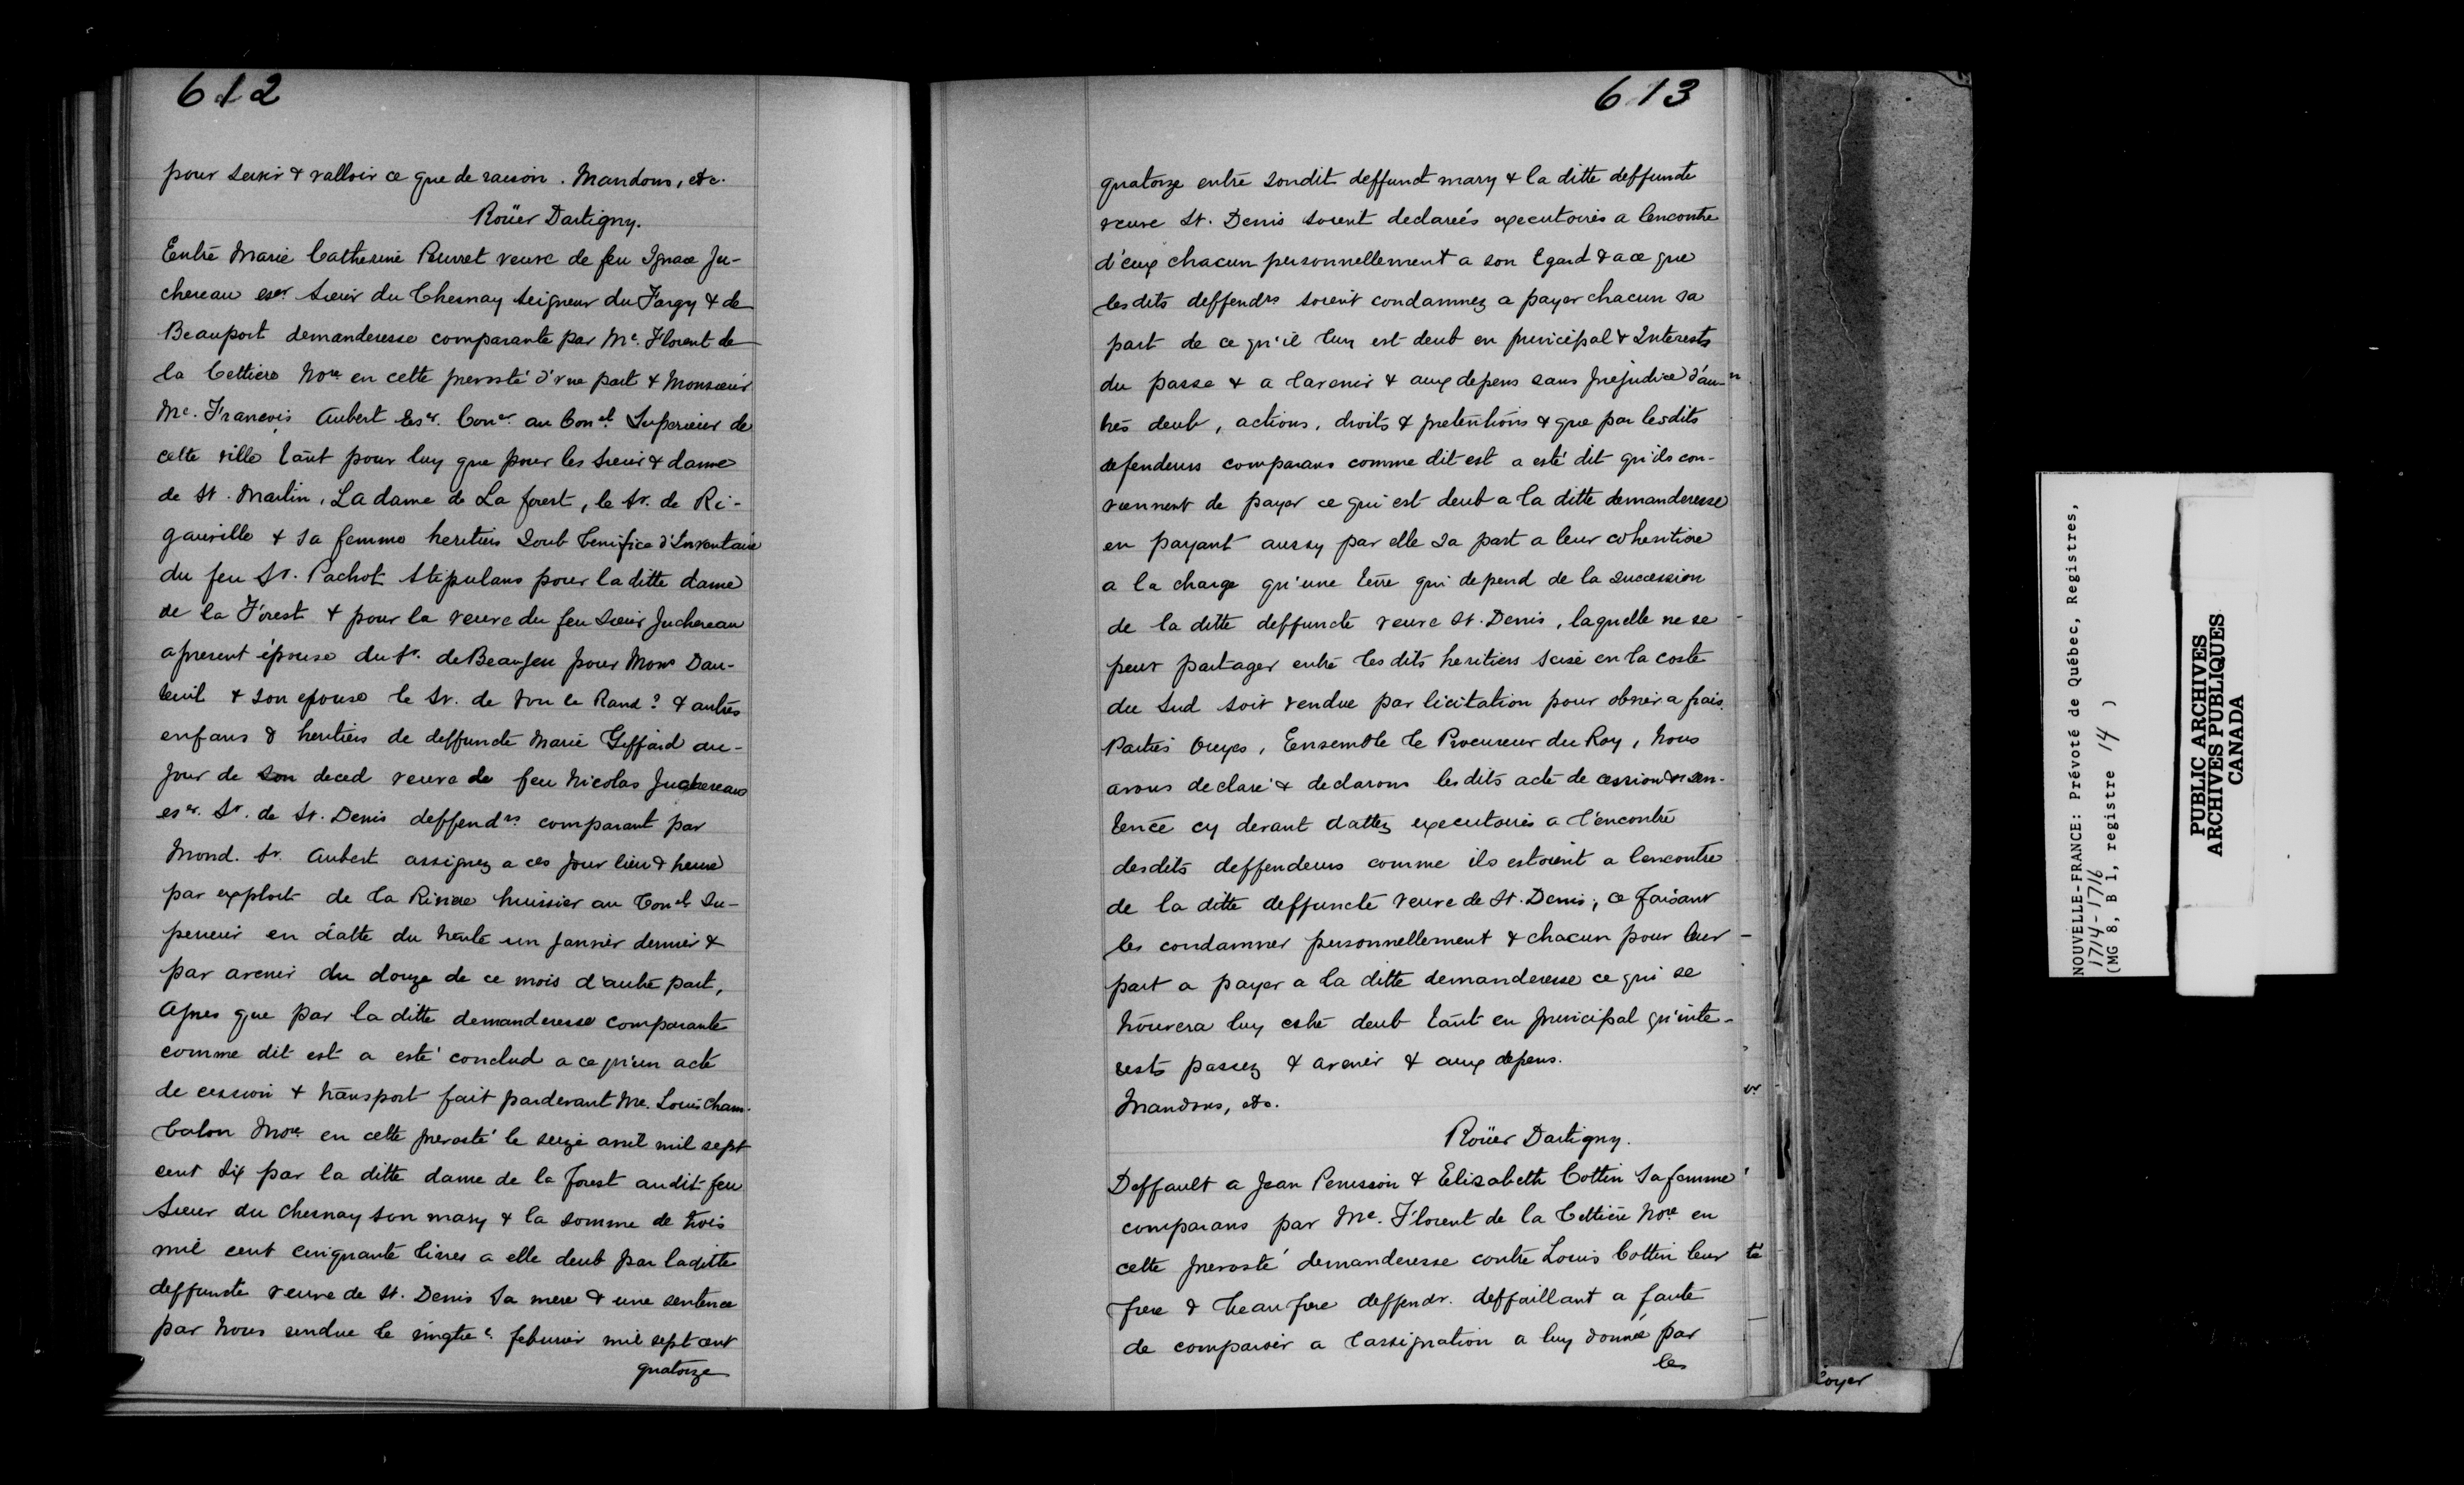 612
pour servir & valloir ce que de raison. Mandons, etc.
Roüer Dartigny.
Entre Marie Catherine Peuvret veuve de feu Ignace Ju-
chereau eser Sieur du Chesnay Seigneur du Fargy & de
Beauport demanderesse comparante par Me. Florent de
la Cettiere Nore en cette prevosté d'vne part & Monsieur
Me. Francois Aubert Eser. Coner au Conel Superieur de
cette ville tant pour luy que pour les Sieur & dame
de St. Martin, La dame de La forest, le Sr. de Ri-
gauville & sa femme heritiers Soub benifice d'Inventaire
du feu Sr. Pachot Stipulans pour la ditte dame
de la Forest & pour la veuve du feu Sieur Juchereau
apresent épouse du Sr. de Beaujeu pour Mons Dau-
teuil & son epouse le Sr. de Von le Rand? & autres
enfans & heritiers de deffuncte Marie Giffard au-
jour de son deced veuve de feu Nicolas Juchereau
eser. Sr. de St. Denis deffendrs comparant par
Mond. Sr. Aubert assignez a ces jour lieu & heure
par exploit de la Riviere huissier au Conel Su-
perieur en datte du trente un Janvier dernier &
par avenir du douze de ce mois d'autre part,
Apres que par la ditte demanderesse comparante
comme dit est a esté conclud a ce qu'un acte
de cession & transport fait pardevant Me. Louis Cham-
balon Nore en cette prevosté le seize avril mil sept
cent six par la ditte dame de la Forest audit feu
Sieur du Chesnay son mary & la somme de trois
mil cent cinquante livres a elle deub par laditte
deffuncte veuve de St. Denis Sa mere & une sentence
par Nous rendue le vingtie. febvrier mil sept cent
quatorze
613
quatorze entre sondit deffunct mary & la ditte deffuncte
veuve St. Denis soient declareés executoires a lencontre
d'eux chacun personnellement a son Egard & a ce que
lesdits deffendrs soient condamnez a payer chacun sa
part de ce qu'il luy est deub en principal & Interests
du passe & a l'avenir & aux depens sans prejudice d'au-
tres deub, actions, droits & pretentions & que par lesdits
defendeurs comparans comme dit est a esté dit qu'ils con-
viennent de payer ce qui est deub a la ditte demanderesse
en payant aussy par elle sa part a leur coheritiere
a la charge qu'une terre qui depend de la succession
de la ditte deffuncte veuve St. Denis, laquelle ne se
peut partager entre lesdits heritiers scise en la coste
du Sud soit vendue par licitation pour obvier a frais.
Parties Ouyes, Ensemble le Procureur du Roy, Nous
avons declaré & declarons lesdits acte de cession & sen-
tence cy devant dattez executoires a l'encontre
desdits deffendeurs comme ils estoient a lencontre
de la ditte deffuncte veuve de St. Denis, ce faisant
les condamner personnellement & chacun pour leur
part a payer a la ditte demanderesse ce qui se
trouvera luy estre deub tant en principal qu'inte-
rests passez & avenir & aux depens.
Mandons, etc.
Roüer Dartigny.
Deffault a Jean Penisson & Elizabeth Cottin Sa femme
comparans par Me. Florent de la Cettiere Nore en
cette prevosté demanderesse contre Louis Cottin leur
frere & beaufrere deffendr. deffaillant a faute
de comparoir a l'assignation a luy donnée par
les
NOUVELLE-FRANCE: Prévoté de Québec, Registres,
1714-1716
(MG 8, B 1, registre 14 )
PUBLIC ARCHIVES
ARCHIVES PUBLIQUES
CANADA